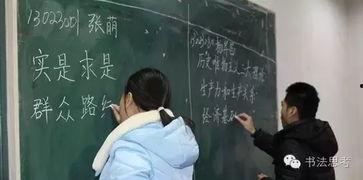 13022001 张萌
实是求是
群众路线
历史唯物主义二大理论
生产力和生产关系
经济基础
书法思考